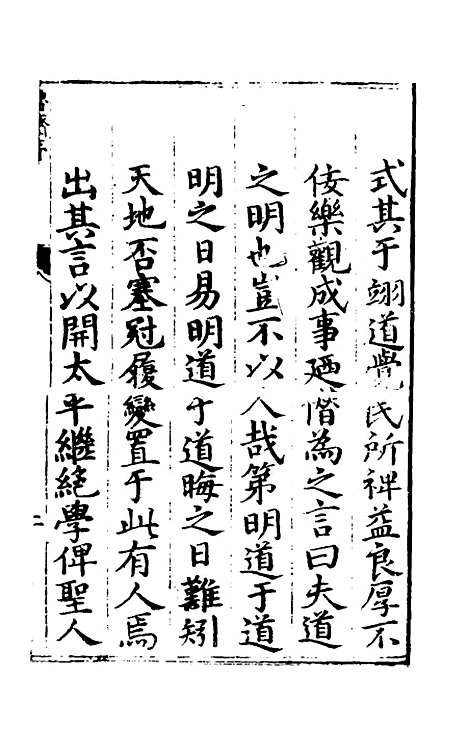 式其于翊道覺民所裨益良厚不
佞樂觀成事廼僭為之言曰夫道
之明也豈不以人哉第明道于道
明之日易明道于道晦之日難矧
天地否塞冠履變置于此有人焉
出其言以開太平繼絕學俾聖人
二